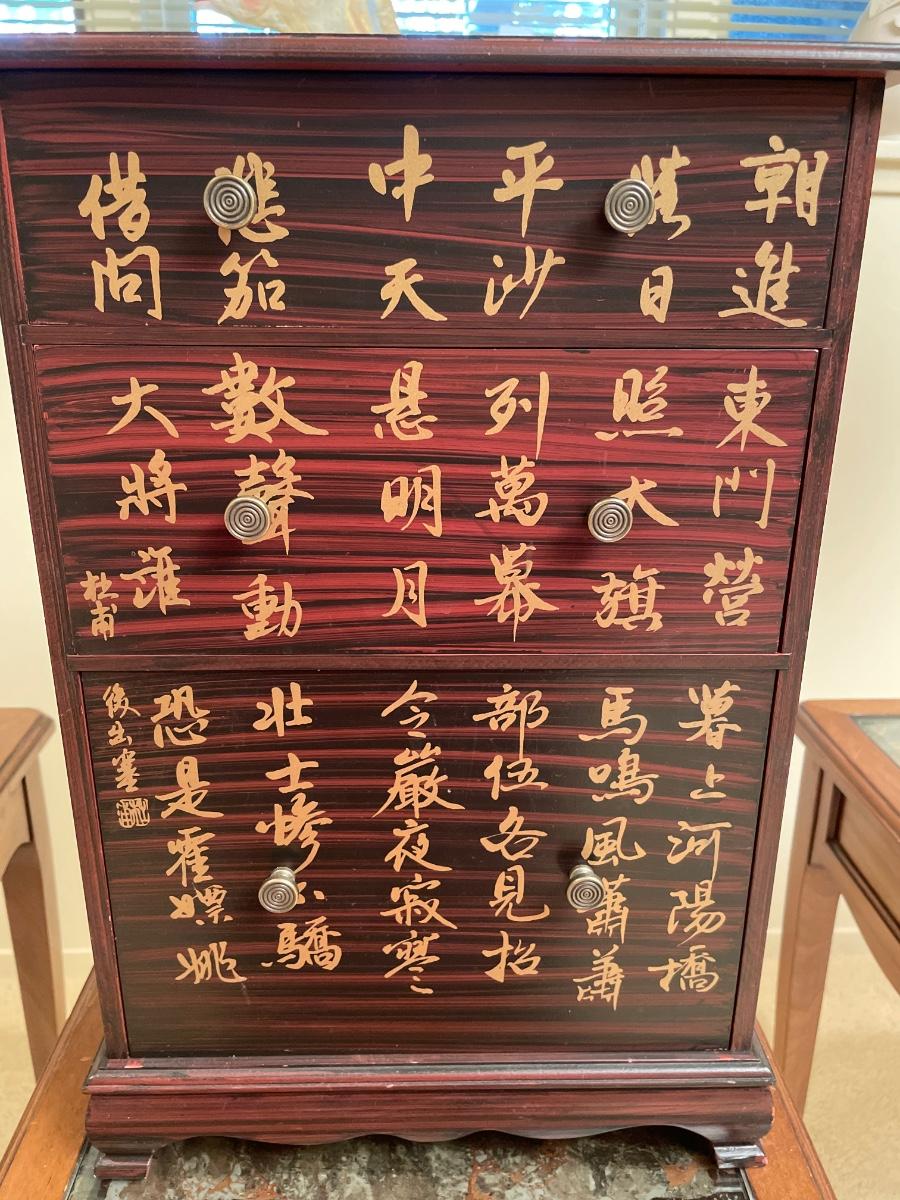 朝進東門營暮上河陽橋
日照大旗馬鳴風蕭蕭
平沙列萬幕部伍各見招
中天悬明月令嚴夜寂寥
悲笳數聲動壯士慘不驕
借問大將誰恐是霍嫖姚
杜甫
後出塞